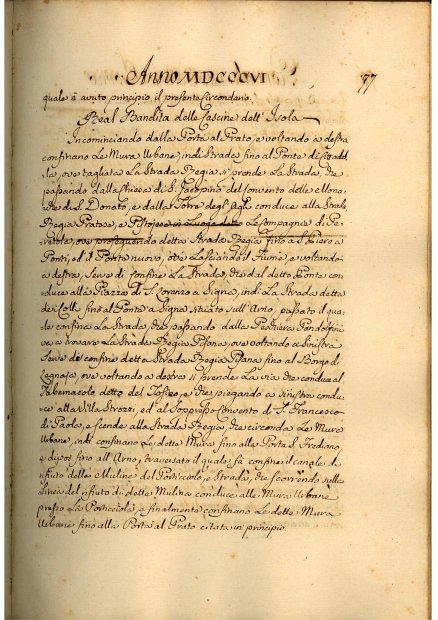 Anno MDCCCVI
97
quale à avuto principio il presente Circondario.
Real Bandita delle Cascine dell'Isola
Incominciando dalla Porta al Prato, e voltando a destra
confinano Le Mura Urbane, indi Strada fino al Ponte
ove tagliata La Strada Regia si prende La Strada, che
passando dalla Chiesa di S. Jacopino del Convento delle Mona-
che di S. Donato, e dalla Torre degl'Agli conduce alla Strada
Regia Pratese, e Pistojese in Luogo detto Le Compagnia di Pe-
retola, ove proseguendo detta Strada Regia fino a S. Piero a
Ponti, ed il Ponte nuovo, ove Lasciando il Fiume, e voltando
a destra, Serve di Confine La Strada, che dal detto Ponte con-
duce alla Piazza di S. Lorenzo a Signa, indi La Strada detta
dei Colli fino al Ponte a Signa situato sull'Arno, passato il qua-
le confina La Strada, che passando dalle Peschiere Gandolfini
va a trovare La Strada Regia Pisana, ove voltando a Sinistra
Serve di confine detta Strada Regia Pisana fino al Borgo di
Legnaja, ove voltando a destra si prende La via che conduce al
Tabernacolo detto del e che piegando a sinistra condu-
ce alla Villa Strozzi, ed al Soppresso Convento di S. Francesco
di Paola, e scende alla Strada Regia, che circonda Le Mura
Urbane, indi confinano Le dette Mura fino alla Porta S. Frediano
e di poi fino all'Arno, travesato il quale, fà confine il canale, di
rifiuto delle Muline del Porticciolo, e Strada, che scorrendo sulla
Linea del rifiuto di dette Mulina conduce alle Mura Urbane
presso La Porticciola, e finalmente confinano Le dette Mura
Urbane fino alla Porta al Prato citata in principio.